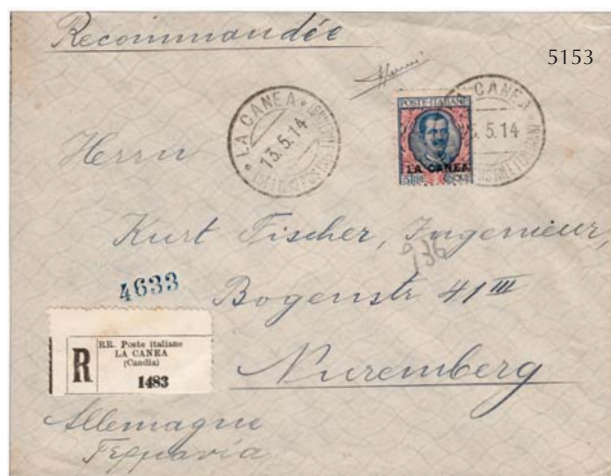 Recommandée
5153
LA CANEA
13.5.14
POSTE ITALIANE
LA CANEA
5 LIRE
CANEA
5.14
Herrn
Kurt Fischer, Ingenieur,
936
4633
Bogenstr 41 III
RR. Poste italiane
LA CANEA
(Candia)
R
1483
Nuremberg
Allemagne
Γερμανία